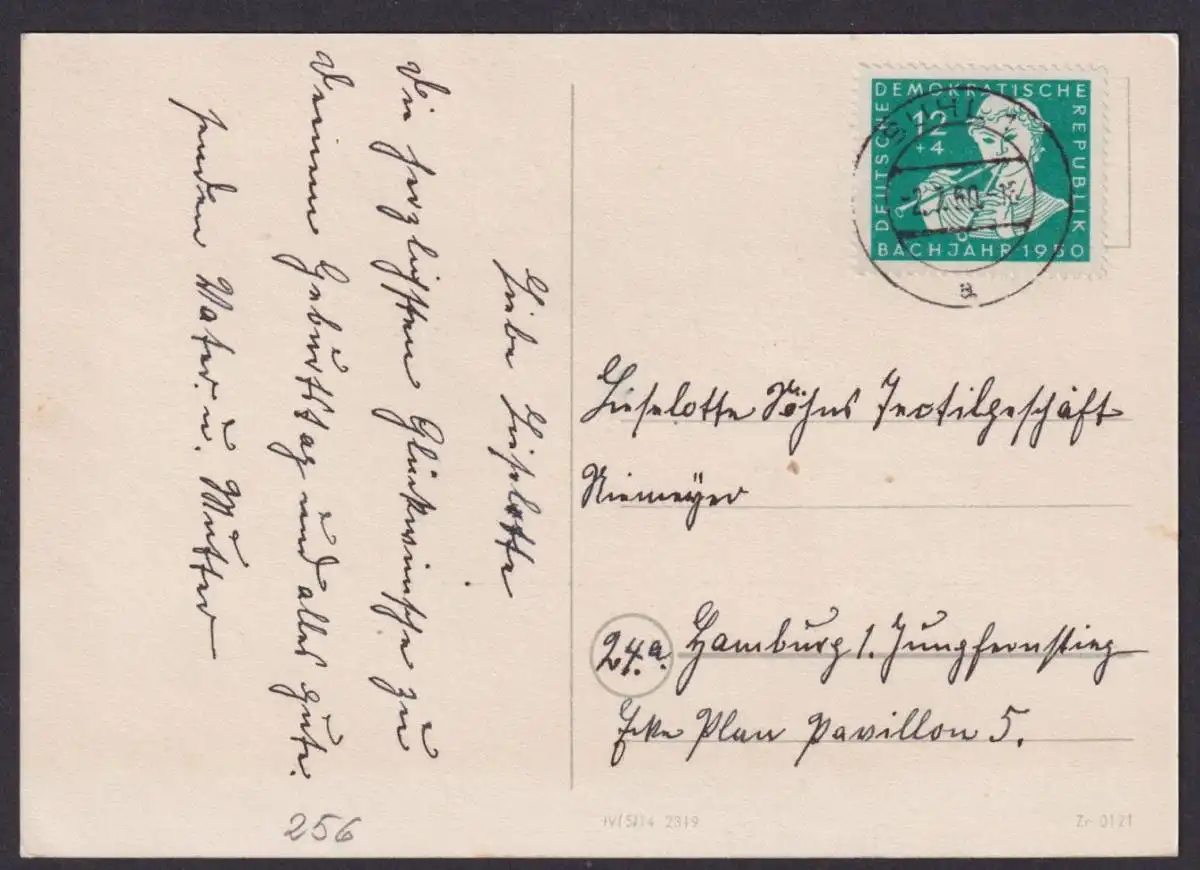 Liebe Liselotte
Die herzlichsten Glückwünsche zu
deinem Geburtstag und alles gute.
senden Vater u. Mutter
256
DEUTSCHE DEMOKRATISCHE REPUBLIK
12
+4
BACHJAHR 1950
SUHL 1
-2.2.60.-15
a
Lieselotte Böhns Textilgeschäft
Niemeyer
24a. Hamburg 1. Jungfernstieg
Ecke Plan Pavillon 5.
IV/5/14 2319
Zr 0121